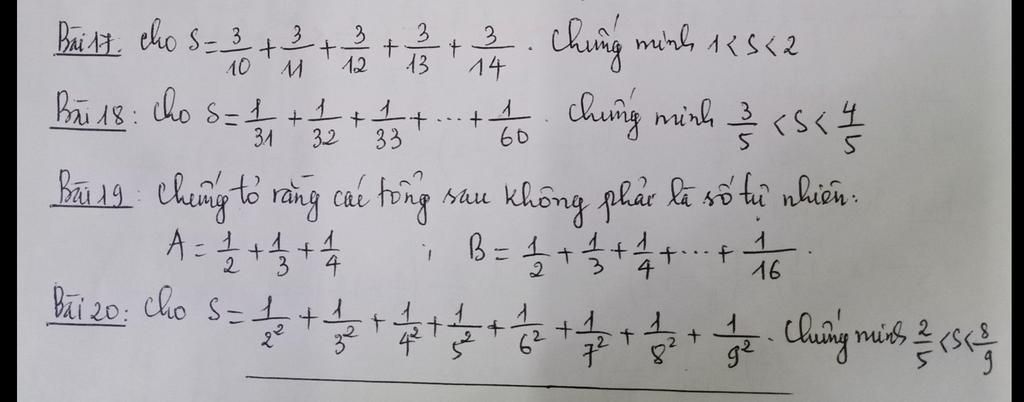 Bài 17. Cho S = 3/10 + 3/11 + 3/12 + 3/13 + 3/14. Chứng minh 1 < S < 2
Bài 18: Cho S = 1/31 + 1/32 + 1/33 + ... + 1/60. Chứng minh 3/5 < S < 4/5
Bài 19: Chứng tỏ rằng các tổng sau không phải là số tự nhiên.
A = 1/2 + 1/3 + 1/4 ; B = 1/2 + 1/3 + 1/4 + ... + 1/16.
Bài 20: Cho S = 1/2² + 1/3² + 1/4² + 1/5² + 1/6² + 1/7² + 1/8² + 1/9². Chứng minh 2/5 < S < 8/9